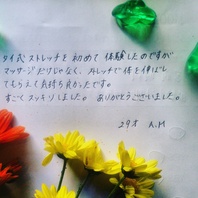 タイ式ストレッチを初めて体験したのですが
マッサージだけじゃなく、ストレッチで体を伸ばし
てもらえて気持ち良かったです。
すごくスッキリしました。ありがとうございました。
29才 A.M